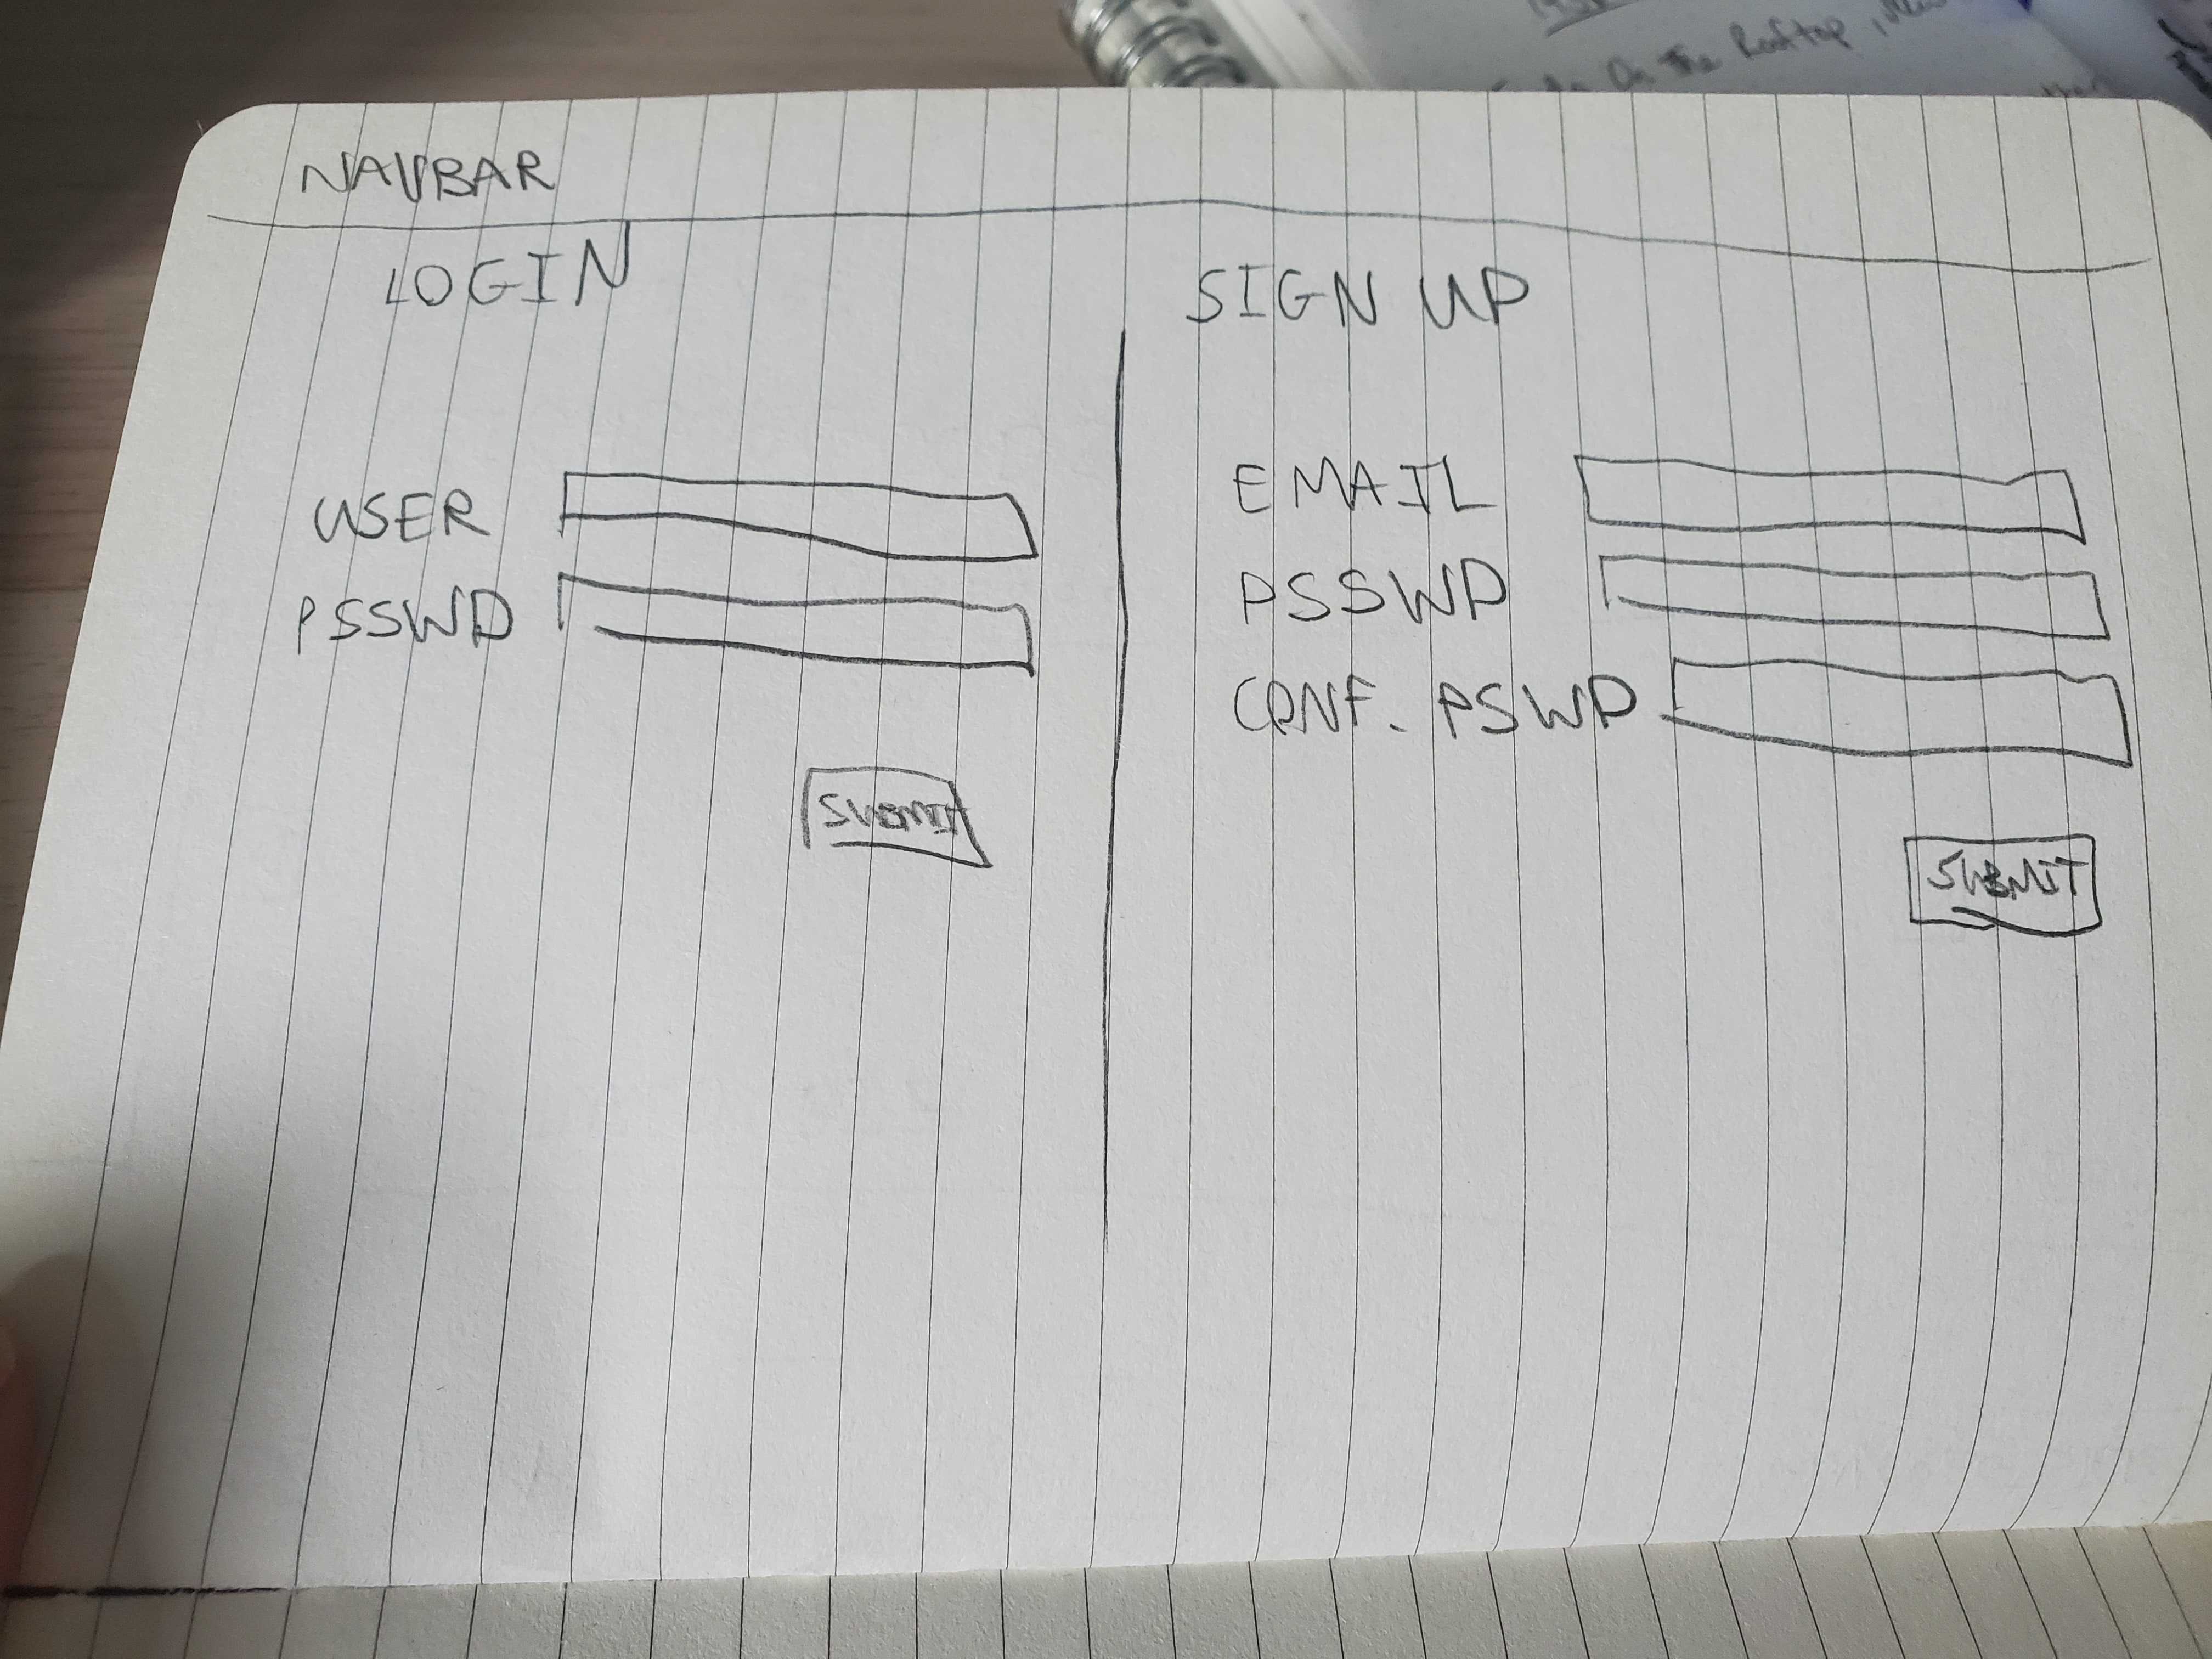 On the Rooftop,
NAVBAR
LOGIN
USER
PSSWD
SUBMIT
SIGN UP
EMAIL
PSSWD
CONF. PSWD
SUBMIT